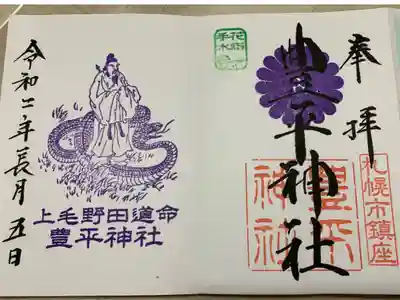 奉拝
豊平神社
札幌市鎮座
豊平神社
花手水
令和二年長月五日
上毛野田道命
豊平神社